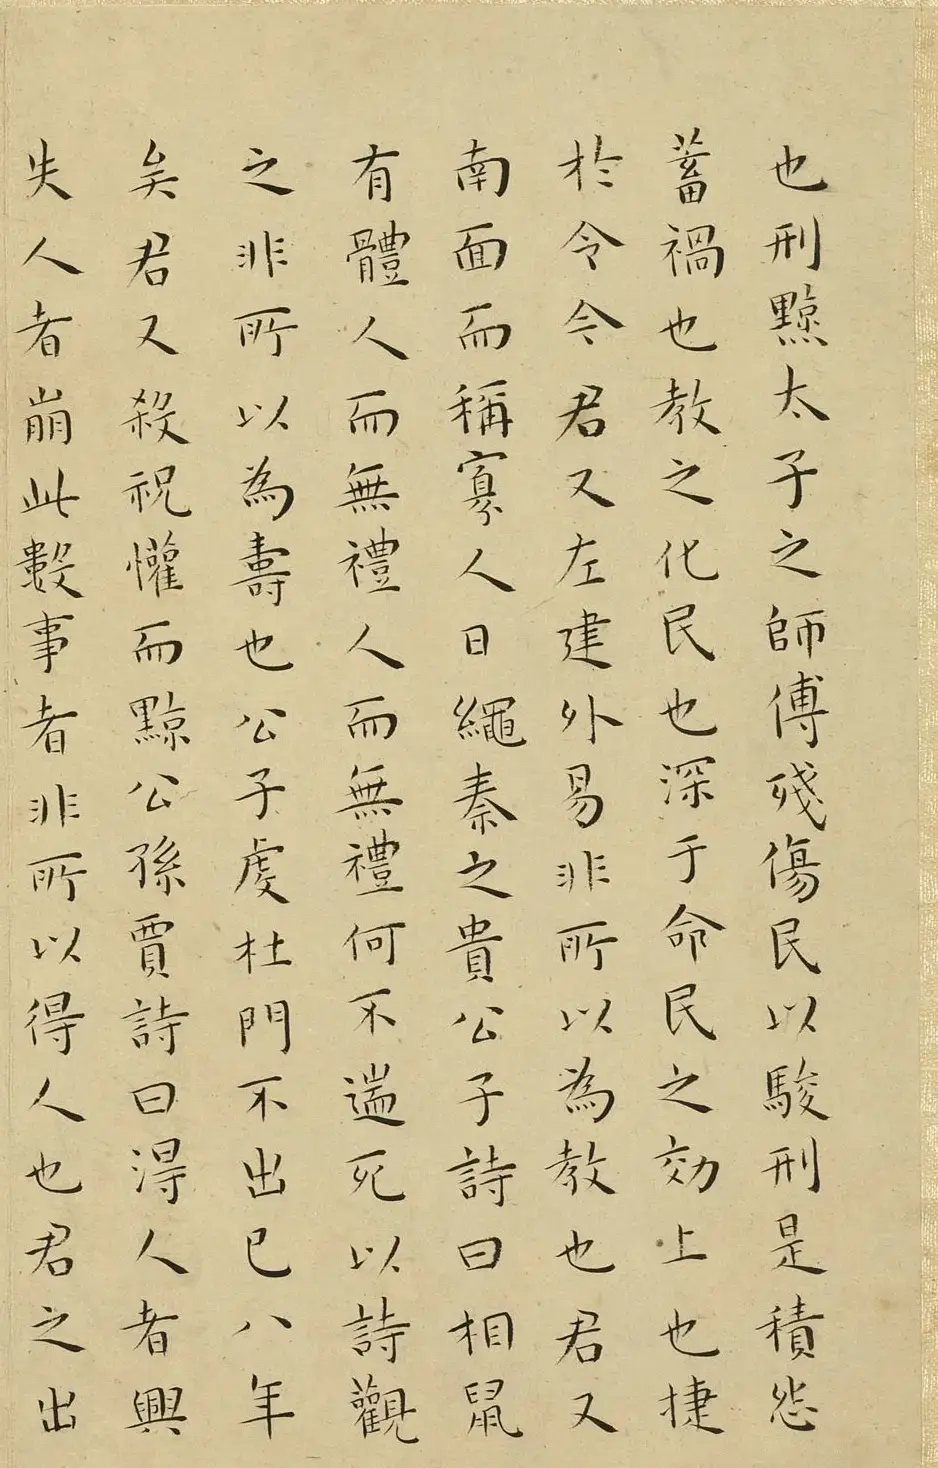 也刑黥太子之師傅殘傷民以駿刑是積怨
蓄禍也教之化民也深于命民之効上也捷
於令今君又左建外易非所以為教也君又
南面而稱寡人日繩秦之貴公子詩曰相鼠
有體人而無禮人而無禮何不遄死以詩觀
之非所以為壽也公子虔杜門不出已八年
矣君又殺祝懽而黥公孫賈詩曰得人者興
失人者崩此數事者非所以得人也君之出